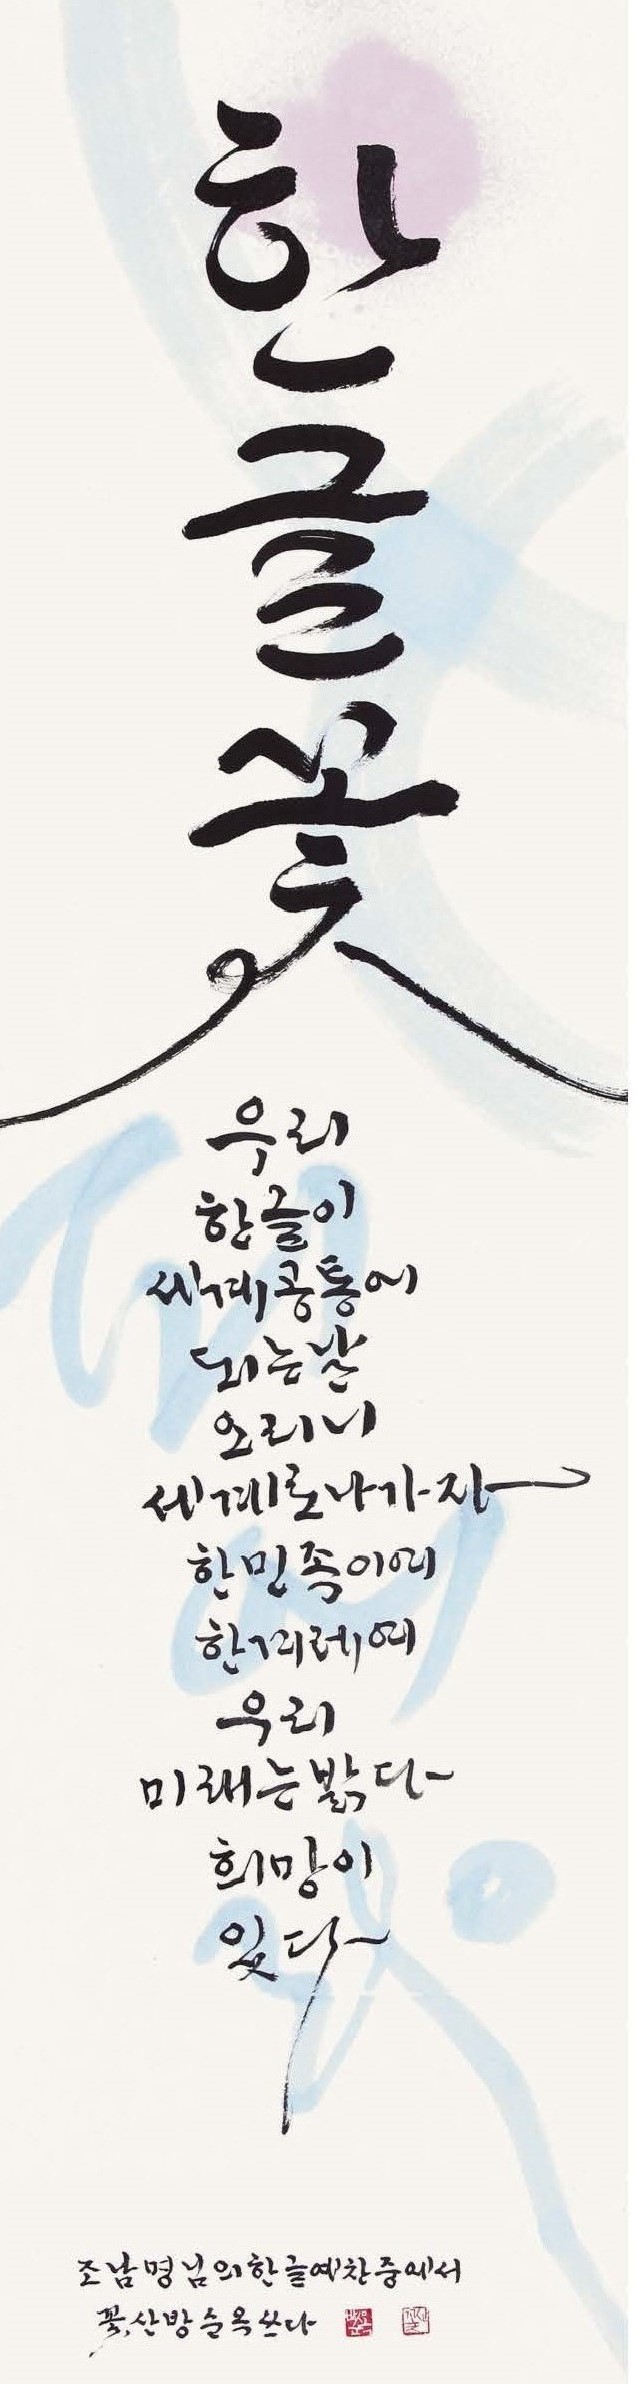 한글꽃
우리
한글이
세계공통어
되는날
오리니
세계로나가자
한민족이여
한겨레여
우리
미래는밝다
희망이
있다
조남명님의한글예찬중에서
꽃산방순옥쓰다